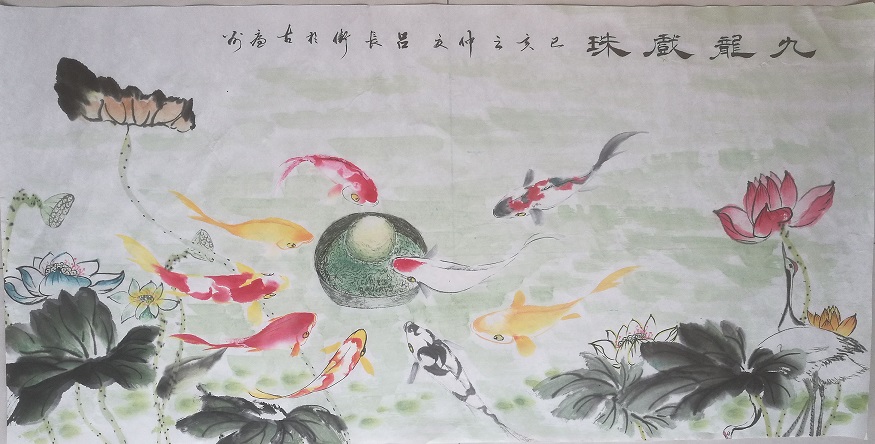 九龍戲珠 己亥之仲夏 呂長衛於古齋